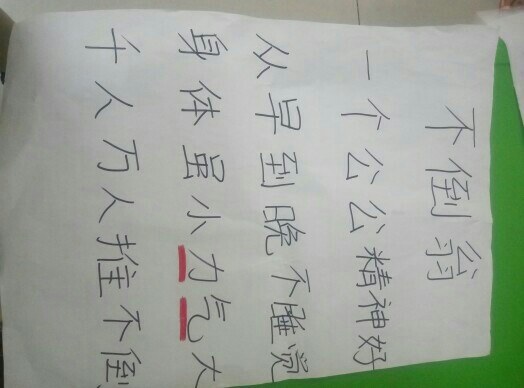 不倒翁
一个公公精神好
从早到晚不睡觉
身体虽小力气大
千人万人推不倒